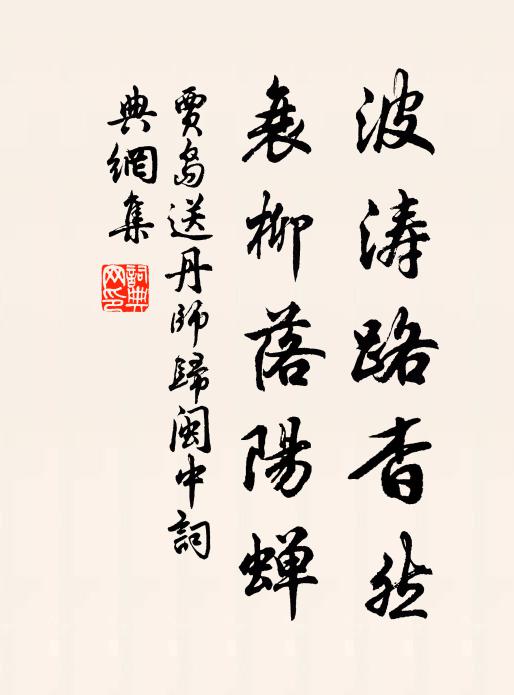 波涛路杳然
衰柳落陽蝉
賈島送丹师歸闽中詞
典網集
詞典
网印